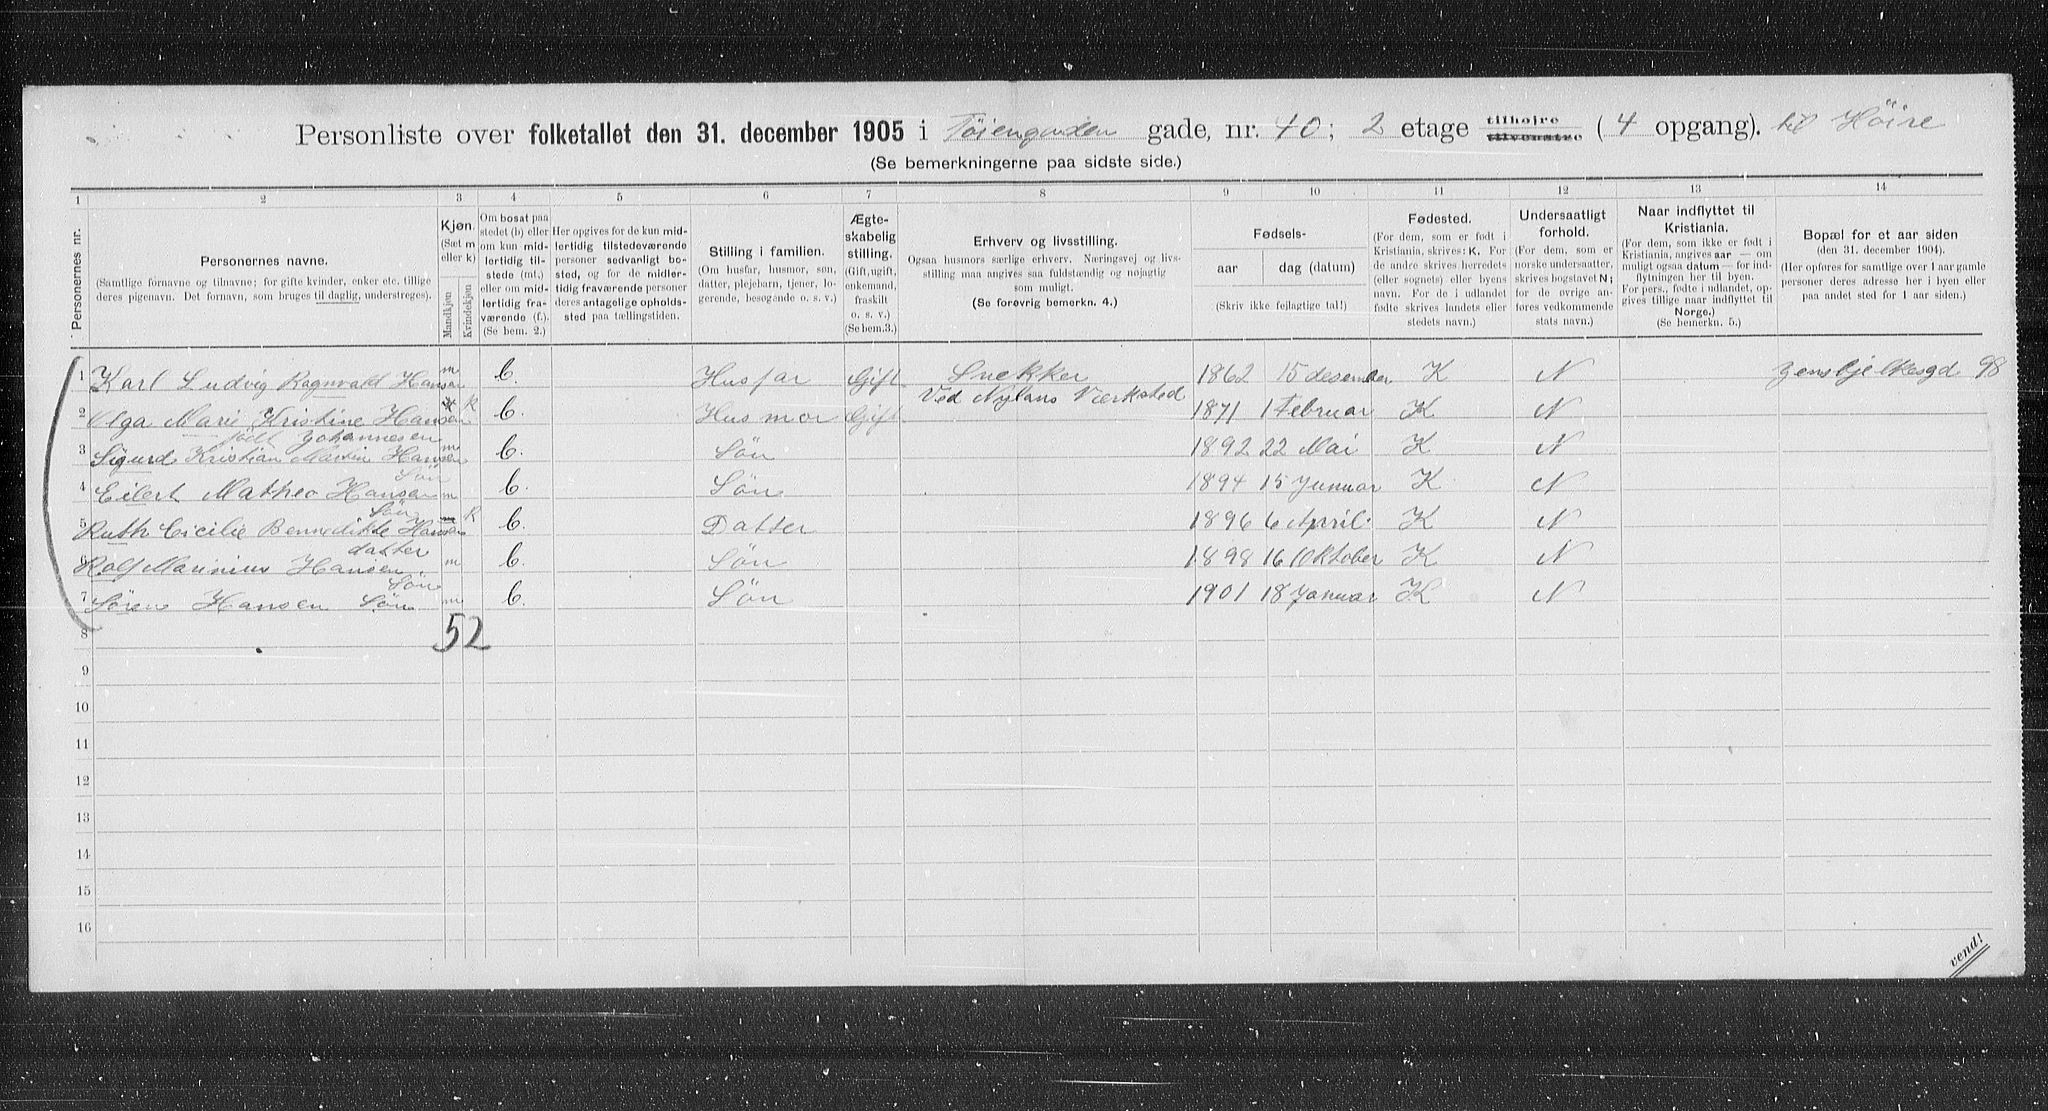 Personliste over folketallet den 31. december 1905 i Tøiengaden gade, nr. 40; 2 etage tilhøjre tilvenstre (4 opgang). til Höire
(Se bemerkningerne paa sidste side.)
1 2 3 4 5 6 7 8 9 10 11 12 13 14
Personernes nr.
Personernes navne.
(Samtlige fornavne og tilnavne; for gifte kvinder, enker etc. tillige
deres pigenavn. Det fornavn, som bruges til daglig, understreges).
Kjøn.
(Sæt m
eller k)
Mandkjøn
Kvindekjøn
Om bosat paa
stedet (b) eller
om kun mid-
lertidig til-
stede (mt,)
eller om mid-
lertidig fra-
værende (f.).
(Se bem. 2.)
Her opgives for de kun mid-
lertidig tilstedeværende
personer sedvanligt bo-
sted, og for de midler-
tidig fraværende personer
deres antagelige opholds-
sted paa tællingstiden.
Stilling i familien.
(Om husfar, husmor, søn,
datter, plejebarn, tjener, lo-
gerende, besøgende o. s. v.)
Ægte-
skabelig
stilling.
(Gift, ugift,
enkemand,
fraskilt
o. s. v.)
(Se bem.3.)
Erhverv og livsstilling.
Ogsaa husmors særlige erhverv. Næringsvej og livs-
stilling maa angives saa fuldstændig og nøjagtig
som muligt.
(Se forøvrig bemerkn. 4.)
Fødsels-
aar dag (datum)
(Skriv ikke fejlagtige tal!)
Fødested.
(For dem, som er født i
Kristiania, skrives: K. For
de andre skrives herredets
(eller sognets) eller byens
navn. For de i udlandet
fødte skrives landets eller
stedets navn.)
Undersaatligt
forhold.
(For dem, som er
norske undersaatter,
skrives bogstavet N;
for de øvrige an-
føres vedkommende
stats navn.)
Naar indflyttet til
Kristiania.
(For dem, som ikke er født i
Kristiania, angives aar — om
muligt ogsaa datum — for ind-
flytningen her til byen.
For pers. fødte i udlandet, op-
gives tillige naar indflyttet til
Norge.)
(Se bemerkn. 5.)
Bopæl for et aar siden
(den 31. december 1904).
(Her opføres for samtlige over 1 aar gamle
personer deres adresse her i byen eller
paa andet sted for 1 aar siden.)
1 Karl Ludvig Ragnvald Hansen m b. Husfar Gift Snekker 1862 15 desember K N Jens bjelkesgd 98
Ved Nylans Værksted
2 Olga Marie Kristine Hansen k b. Husmor Gift 1871 1 Februar K N
født Johannesen
3 Sigurd Kristian Martin Hansen m b. Sön 1892 22 Mai K N
Sön
4 Eilert Matheo Hansen m b. Sön 1894 15 Januar K N
Sön
5 Ruth Cicilie Bennedikte Hansen k b. Datter 1896 6 April. K N
datter
6 Rolf Marinius Hansen m b. Sön 1898 16 Oktober K N
Sön
7 Sören Hansen Sön m b. Sön 1901 18 Januar K N
8
52
9
10
11
12
13
14
15
16
vend!